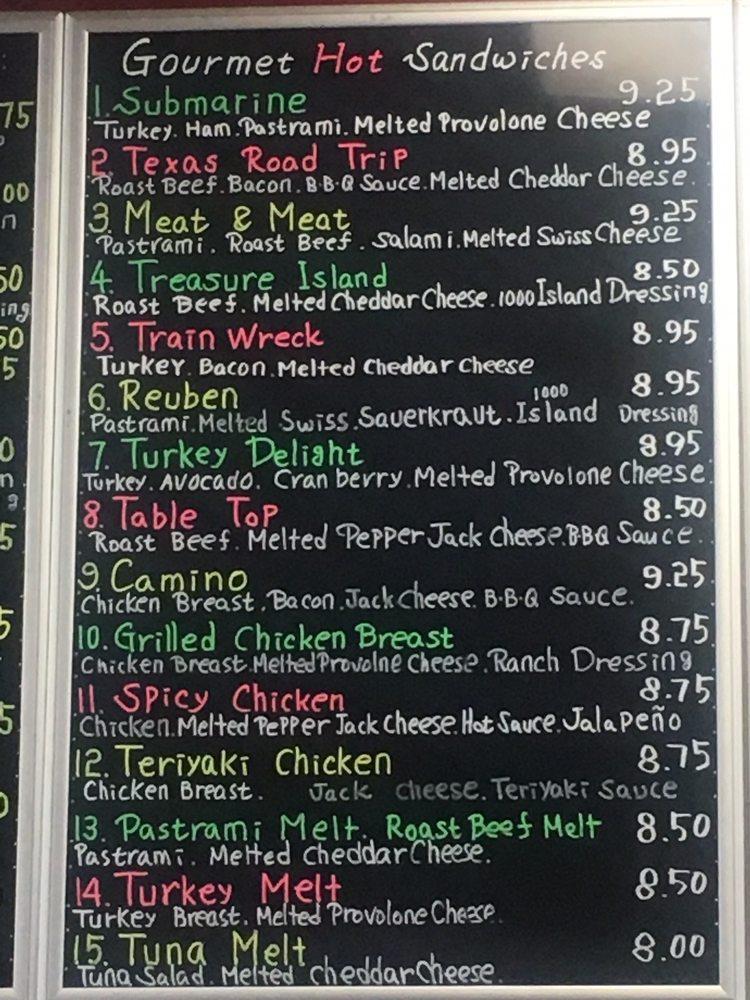 Gourmet Hot Sandwiches
1. Submarine 9.25
Turkey. Ham. Pastrami. Melted Provolone Cheese
2. Texas Road Trip 8.95
Roast Beef. Bacon. B.B.Q Sauce. Melted Cheddar Cheese.
3. Meat & Meat 9.25
Pastrami. Roast Beef. Salami. Melted Swiss Cheese
4. Treasure Island 8.50
Roast Beef. Melted Cheddar Cheese. 1000 Island Dressing
5. Train Wreck 8.95
Turkey. Bacon. Melted Cheddar Cheese
6. Reuben 8.95
Pastrami. Melted Swiss. Sauerkraut. 1000 Island Dressing
7. Turkey Delight 8.95
Turkey. Avocado. Cranberry. Melted Provolone Cheese.
8. Table Top 8.50
Roast Beef. Melted Pepper Jack Cheese. BBQ Sauce.
9. Camino 9.25
Chicken Breast. Bacon. Jack Cheese. B.B.Q Sauce.
10. Grilled Chicken Breast 8.75
Chicken Breast. Melted Provolne Cheese. Ranch Dressing
11. Spicy Chicken 8.75
Chicken. Melted Pepper Jack Cheese. Hot Sauce. Jalapeño
12. Teriyaki Chicken 8.75
Chicken Breast. Jack cheese. Teriyaki Sauce
13. Pastrami Melt. Roast Beef Melt 8.50
Pastrami. Melted Cheddar Cheese.
14. Turkey Melt 8.50
Turkey Breast. Melted Provolone Cheese.
15. Tuna Melt 8.00
Tuna Salad. Melted Cheddar Cheese.